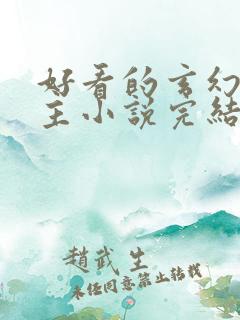 好看的玄幻
主小说完结
赵武生
未经同意禁止转载